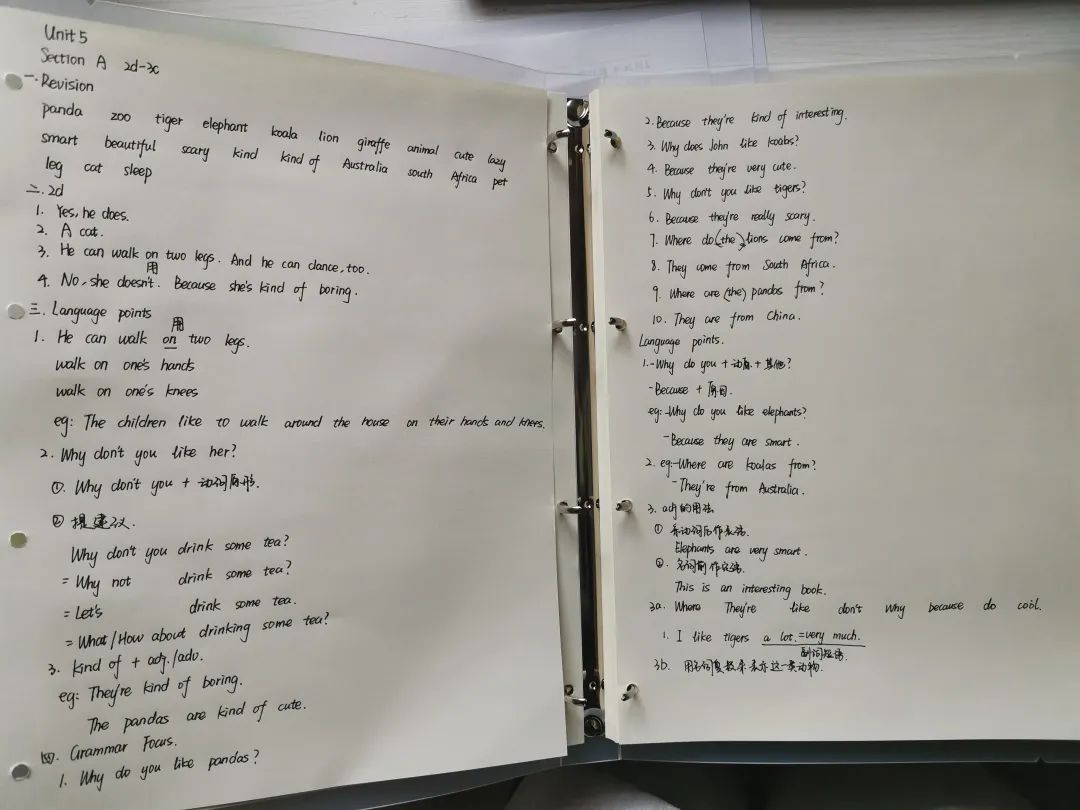 Unit 5
Section A 2d-3c
一. Revision
panda zoo tiger elephant koala lion giraffe animal cute lazy
smart beautiful scary kind kind of Australia south Africa pet
leg cat sleep
二. 2d
1. Yes, he does.
2. A cat.
3. He can walk on two legs. And he can dance, too.
用
4. No, she doesn't. Because she's kind of boring.
三. Language points
用
1. He can walk on two legs.
walk on one's hands
walk on one's knees
eg: The children like to walk around the house on their hands and knees.
2. Why don't you like her?
①. Why don't you + 动词原形.
② 提建议.
Why don't you drink some tea?
= Why not drink some tea?
= Let's drink some tea.
= What/How about drinking some tea?
3. kind of + adj./adv.
eg: They're kind of boring.
The pandas are kind of cute.
四. Grammar Focus.
1. Why do you like pandas?
2. Because they're kind of interesting.
3. Why does John like koalas?
4. Because they're very cute.
5. Why don't you like tigers?
6. Because they're really scary.
7. Where do (the) lions come from?
8. They come from South Africa.
9. Where are (the) pandas from?
10. They are from China.
Language points.
1.-Why do you + 动原 + 其他?
-Because + 原因.
eg:-Why do you like elephants?
-Because they are smart.
2. eg:-Where are koalas from?
-They're from Australia.
3. adj的用法
① 系动词后作表语.
Elephants are very smart.
②. 名词前作定语.
This is an interesting book.
3a. Where They're like don't why because do cool.
1. I like tigers a lot.=very much.
副词短语.
3b. 用名词复数来表示这一类动物.